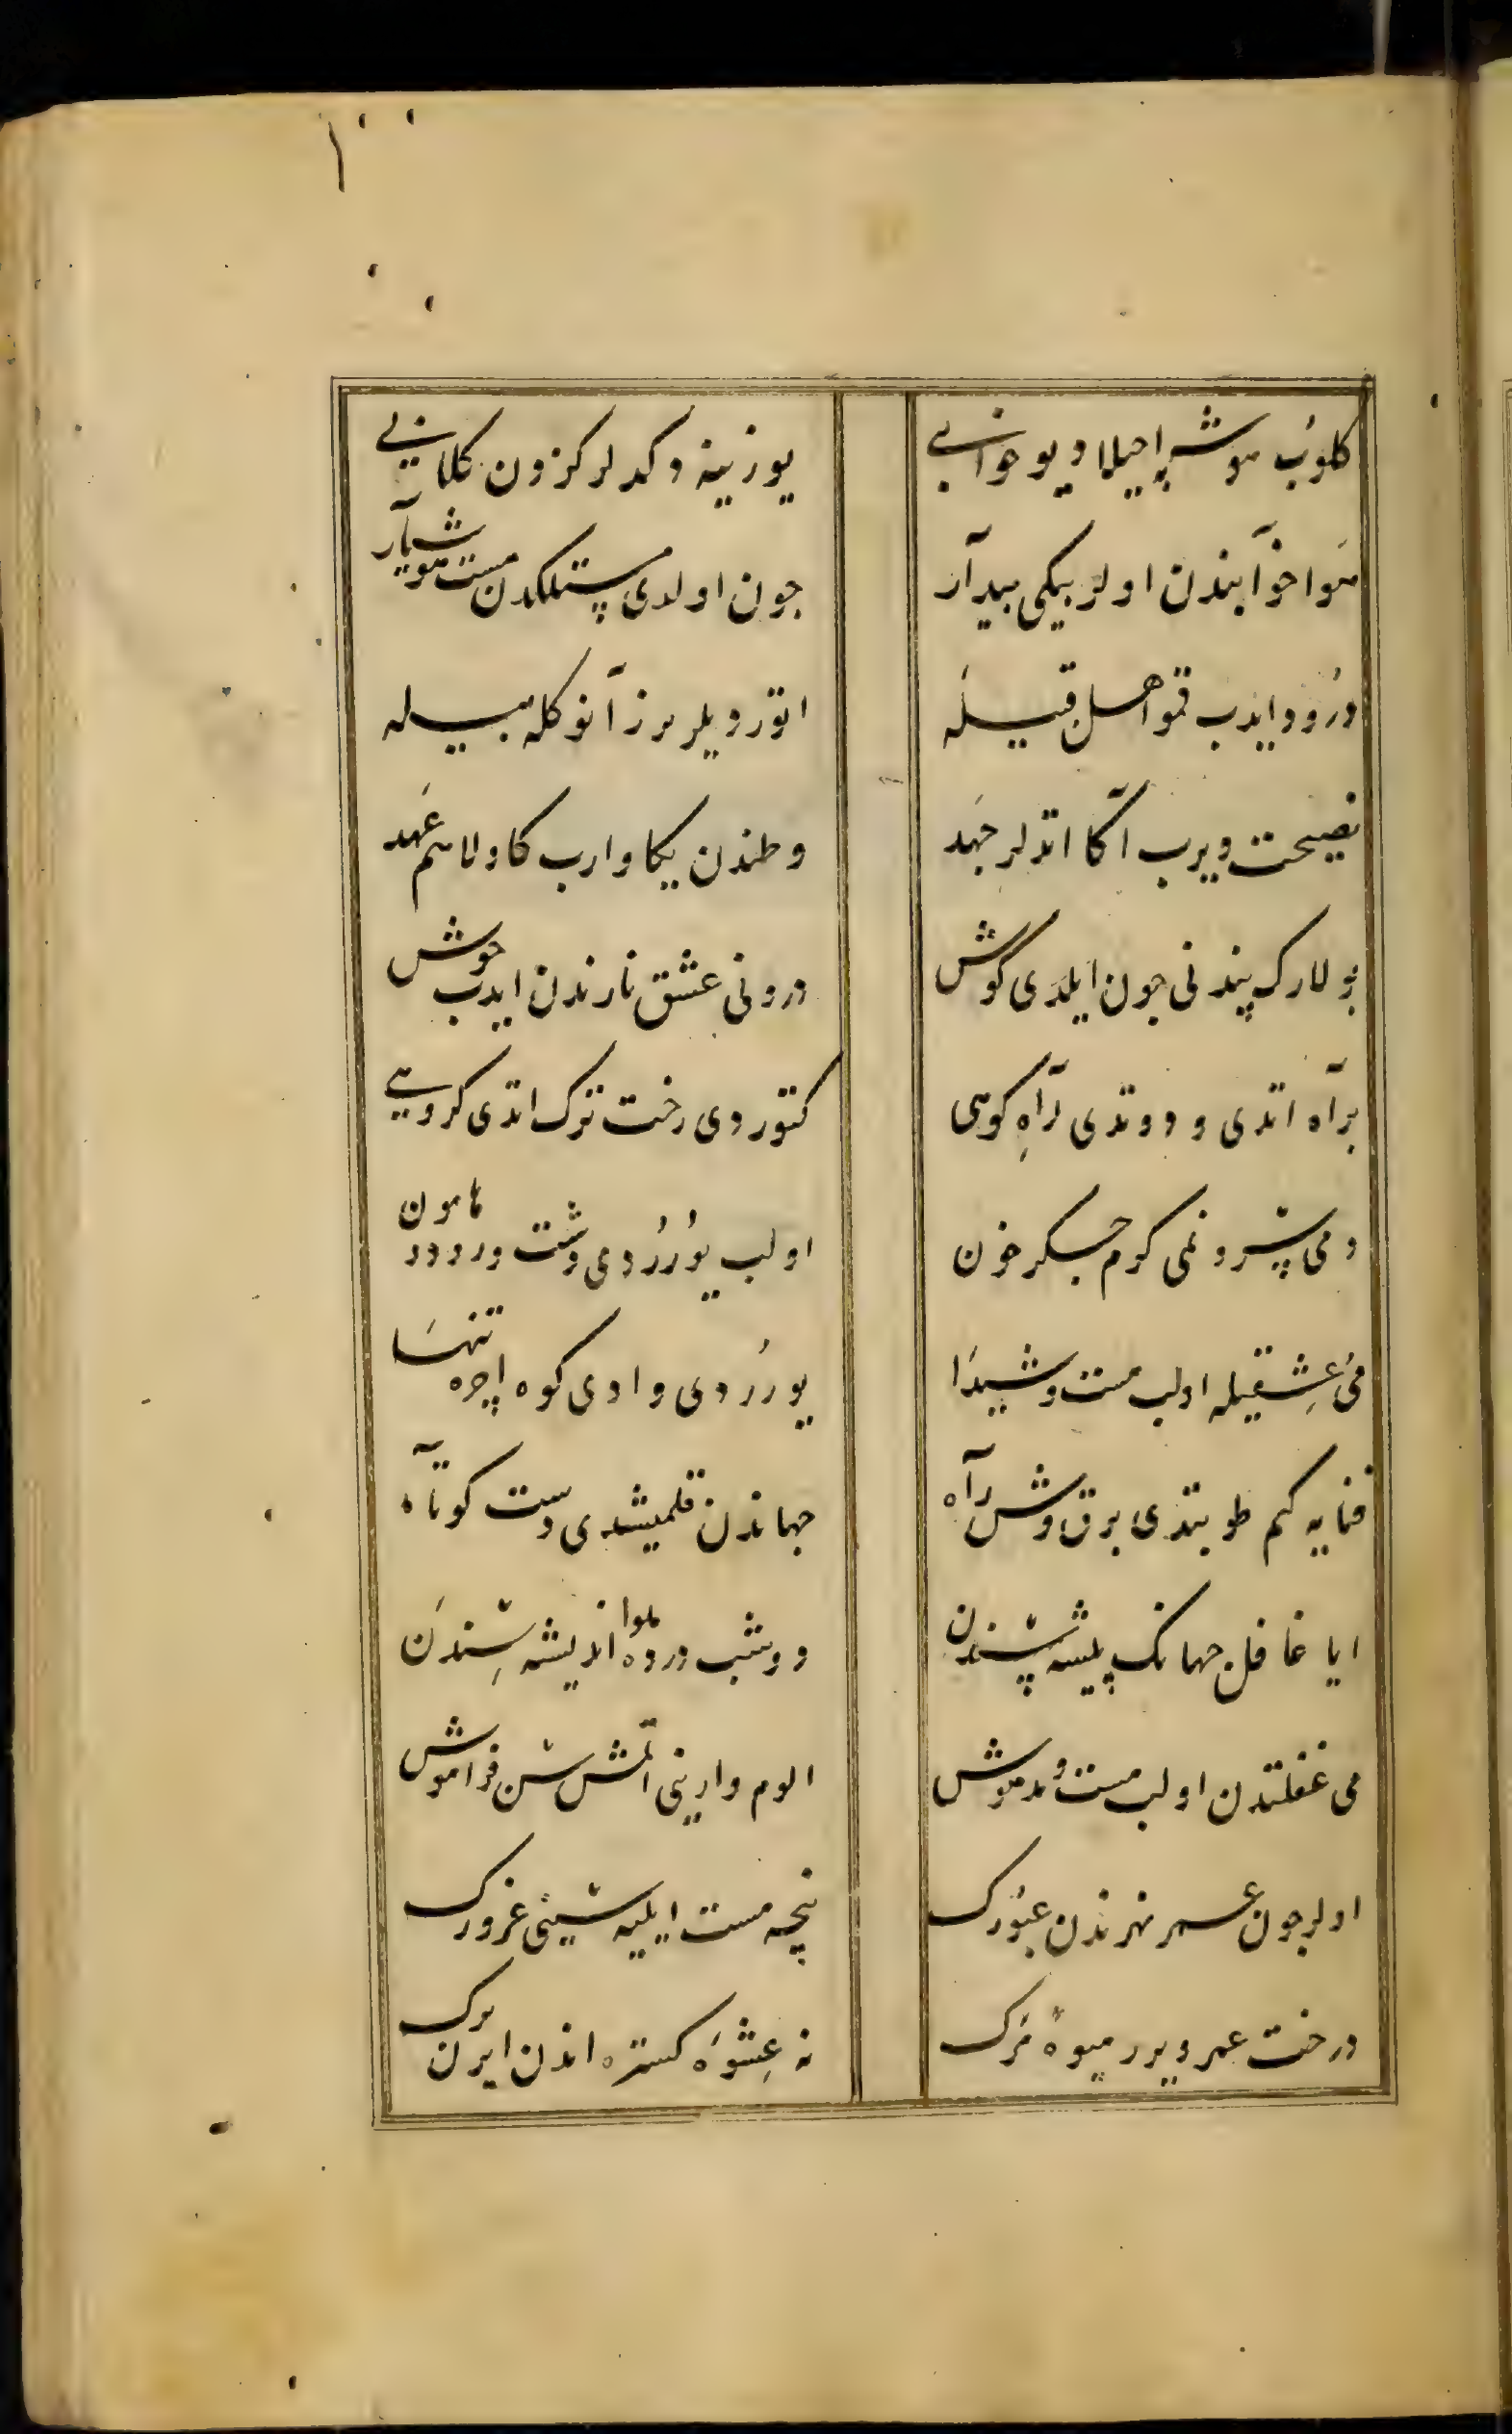 کلوب هوشه احیلا دیو خوابی یوزینه دکدلر کزدن کلابی
هوا خوآبندن اولر بیکی بیدآر جون اولدی پستلکدن مست هوشیآر
درود ایدب قمو اهل قبیله اتوردیلر برز آنوکله بیله
نصیحت ویرب آکا اتدلر جهد وطندن یکا وارب کا ولا هم عهد
بولارک پندنی جون ایلدی کوش درونی عشق نارندن ایدب جوش
برآه اتدی و دوتدی رآه کوهی کتوردی رخت ترک اتدی کروهی
دمی سرد و نمی کرم جکر خون اولب یوررودی دشت و رود هامون
می عشقیله اولب مست و شیدا یوررودی وادی کوه اچره تنها
فنایه کم طوبتدی برق وش رآه جهاندن قلمیشدی دست کوتآه
ایا غافل جهانک پیشه شندن دوشب درده هوا اندیشه شندن
می غفلتدن اولب مست و مدهوش الوم وارینی اتمش سن فراموش
اولر جون عمر نهرندن عبورک نیجه مست ایلیه سینی غرورک
درخت عمر ویرر میوهٔ مرک نه عشوه کستره اندن ایرن برک